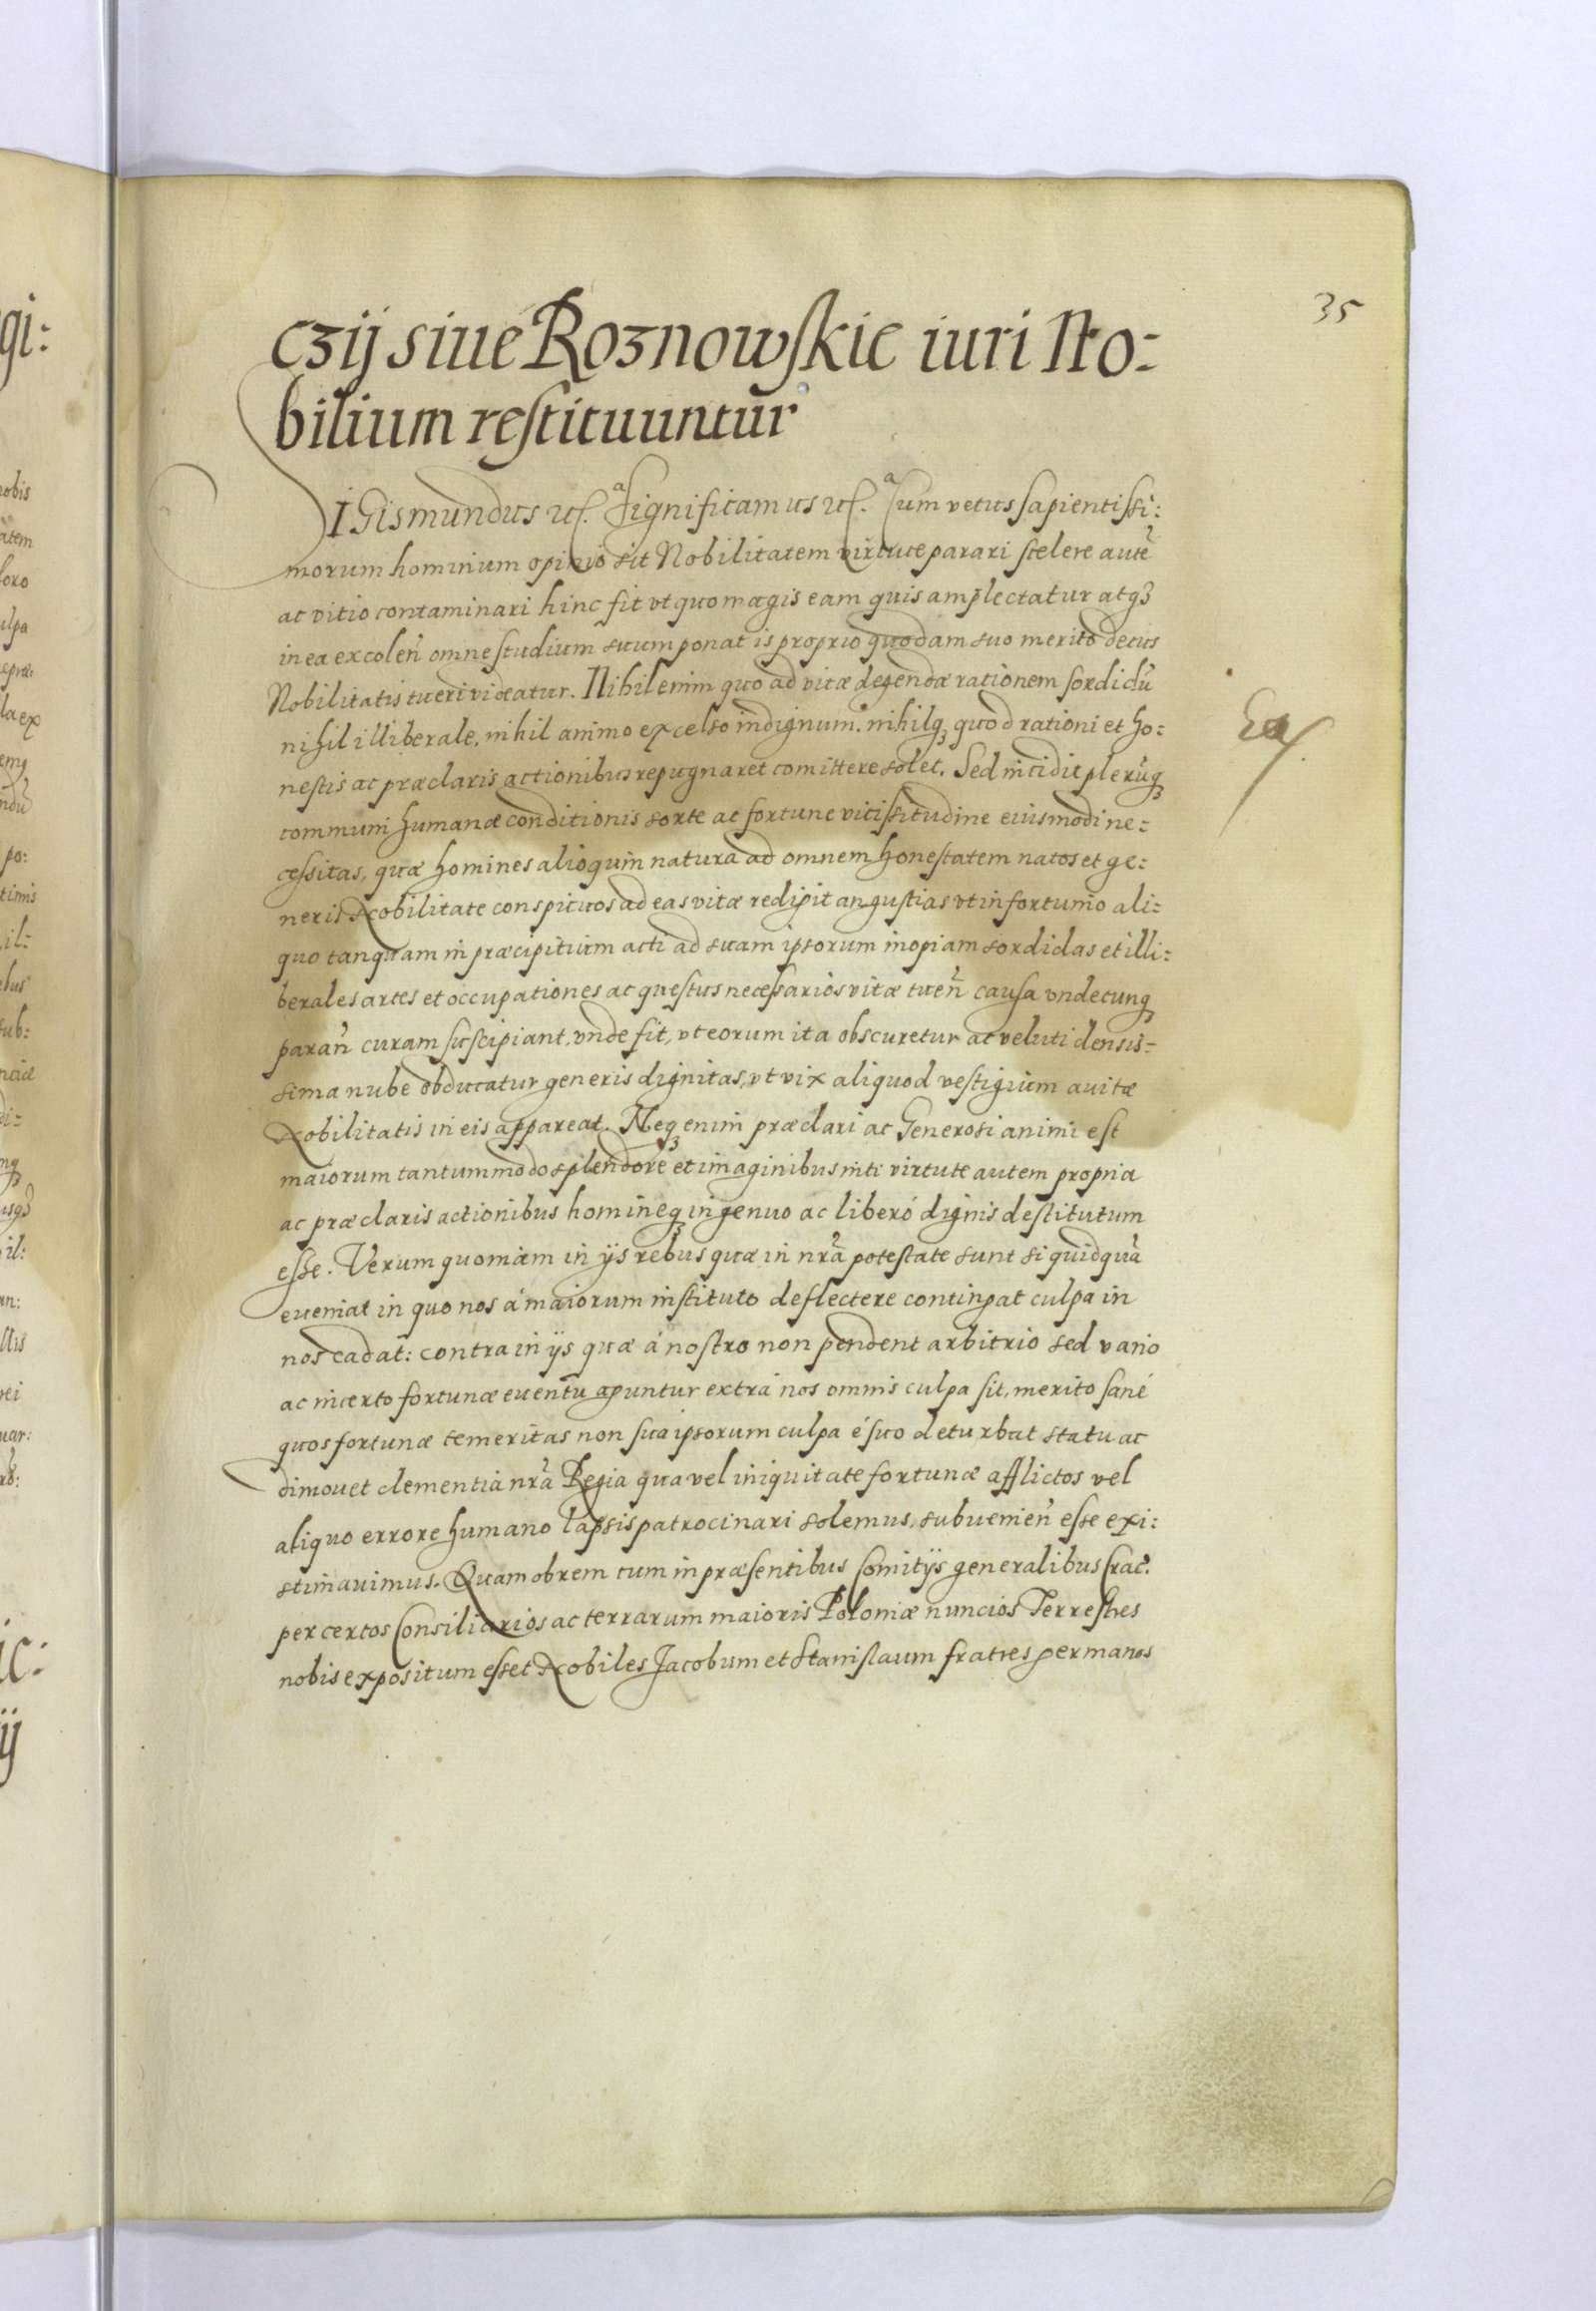 35
czij siue Roznowskie iuri No:
bilium restituuntur
SIGismundus etc. Significamus etc. Cum vetus sapientissi:
morum hominum opinio sit Nobilitatem virtute parari scelere autē
ac vitio contaminari hinc fit vt quo magis eam quis amplectatur atqȝ
in ea excoleñ omne studium suum ponat is proprio quodam suo merito decus
Nobilitatis tueri videatur. Nihil enim quo ad vitæ degendæ rationem sordidū
nihil illiberale, nihil animo excelso indignum. nihilqȝ quod rationi et ho:
nestis ac præclaris actionibus repugnaret comittere solet. Sed incidit plerūqȝ
communi humanæ conditionis sorte ac fortune vicissitudine eiusmodi ne:
cessitas, quæ homines alioquin natura ad omnem honestatem natos et ge:
neris Nobilitate conspicuos ad eas vitæ redigit angustias vt infortunio ali:
quo tanquam in præcipitium acti ad suam ipsorum inopiam sordidas et illi:
berales artes et occupationes ac questus necessarios vitæ tueñ causa vndecunqȝ
parañ curam suscipiant, vnde fit, vt eorum ita obscuretur ac veluti densis:
sima nube obducatur generis dignitas, vt vix aliquod vestigium auitæ
Nobilitatis in eis appareat. Neqȝ enim præclari ac Generosi animi est
maiorum tantummodo splendore et imaginibus niti virtute autem propria
ac præclaris actionibus homineqȝ ingenuo ac liberó dignis destitutum
esse. Verum quoniam in ijs rebus quæ in nrā potestate sunt si quidquā
eueniat in quo nos á maiorum instituto deflectere contingat culpa in
nos cadat: contra in ijs quæ á nostro non pendent arbitrio sed vario
ac incerto fortunæ euentu aguntur extrá nos omnis culpa sit, merito sané
quos fortunæ temeritas non sua ipsorum culpa é suo deturbat statu ac
dimouet clementia nrā Regia qua vel iniquitate fortunæ afflictos vel
aliquo errore humano lapsis patrocinari solemus, subuenieñ esse exi:
stimauimus. Quamobrem cum in præsentibus Comitijs generalibus Crac̄.
per certos Consiliarios ac terrarum maioris Poloniæ nuncios Terrestres
nobis expositum esset Nobiles Jacobum et Stanislaum fratres germanos